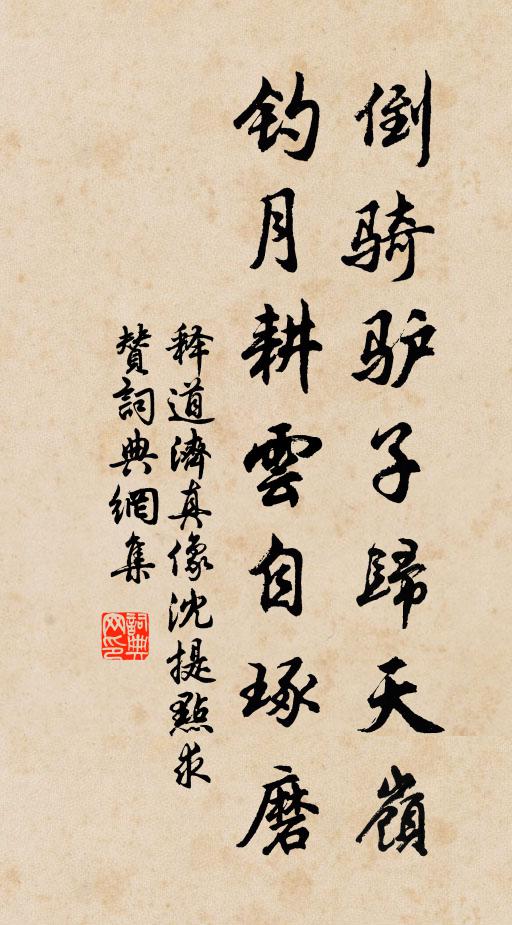 倒骑驴子歸天嶺
钓月耕雲自琢磨
释道濟真像沈提點求
贊詞典網集
詞典网印